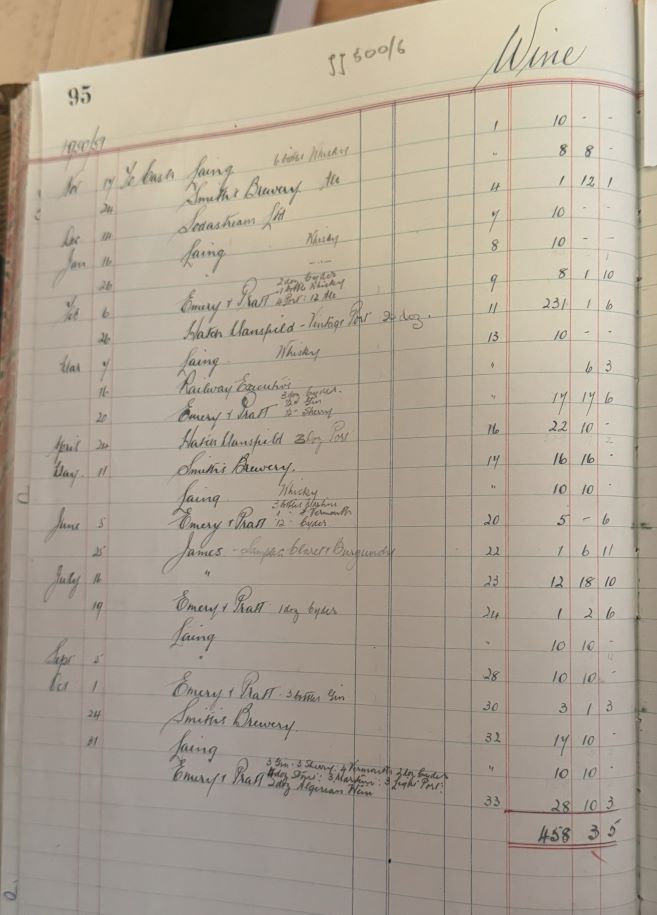 JJ 500/6
Wine
95
Nov 17 To Cash Laing 6 bottles Whisky 1 10 - -
24 Smith's Brewery Ale " 8 8 -
Sodastream Ltd 4 1 12 1
Dec Laing Whisky 7 10 - -
Jan 16 " 8 10 - -
26 Emery & Pratt 2 doz Cyder 1 bottle Whisky 4 Port: 12 Ale 9 8 1 10
Feb 6 Hatch Mansfield - Vintage Port 20 doz. 11 231 1 6
26 Laing Whisky 13 10 - -
Mar 7 Railway Executive " 6 3
16 Emery & Pratt 3 doz Cyder. Gin Sherry " 17 17 6
20 Hatch Mansfield 3 doz Port 16 22 10 -
April 24 Smith's Brewery. 17 16 16 -
May 11 Laing Whisky " 10 10 -
Emery & Pratt 3 bottles Martini 1 " Vermouth 12 " Cyder 20 5 - 6
June 5 James - Samples Claret & Burgundy 22 1 6 11
25 " 23 12 18 10
July 16 Emery & Pratt 1 doz Cyder 24 1 2 6
19 Laing " 10 10 -
" 28 10 10 -
Sept 5 Emery & Pratt - 3 bottles Gin 30 3 1 3
Oct 1 Smith's Brewery 32 17 10 -
24 Laing " 10 10 -
31 Emery & Pratt 3 Gin: 3 Sherry: 4 Vermouth: 2 doz Cyder 4 doz Stout: 3 Martini: 3 Light Port: 2 doz Algerian Wine 33 28 10 3
458 3 5